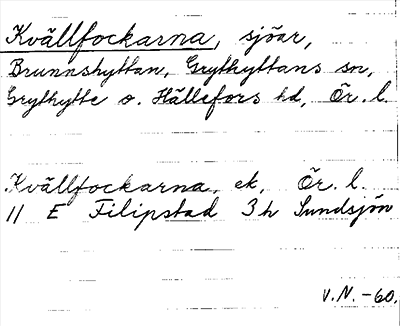 Kvällfockarna, sjöar,
Brunnshyttan, Grythyttans sn,
Grythytte o. Hällefors hd, Ör. l.
Kvällfockarna, ek, Ör. l.
11 E Filipstad 3 h Sundsjön
V.N. -60.